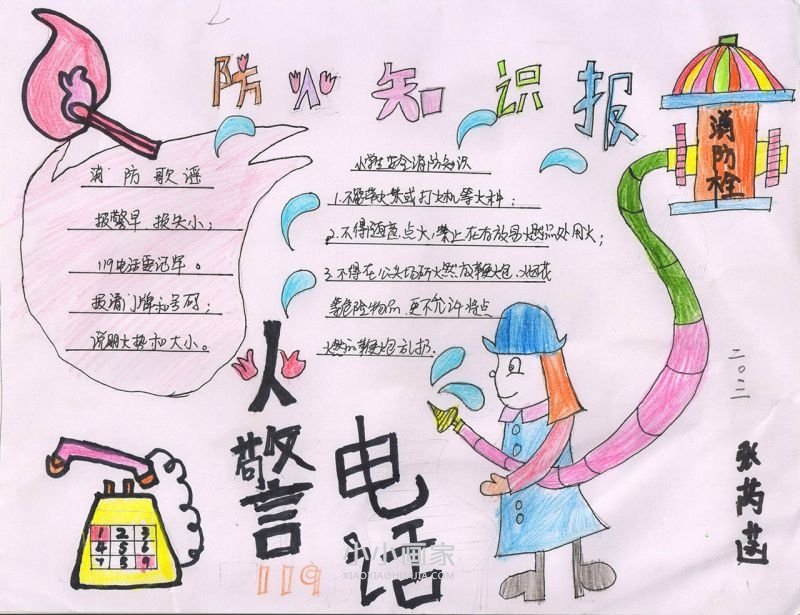 防火知识报
消防栓
消防歌谣
报警早 损失小；
119电话要记牢。
报清门牌和号码；
说明火势和大小。
小学生安全消防知识
1.不携带火柴或打火机等火种；
2.不得随意点火,禁止在存放易燃品处用火；
3.不得在公共场所燃放鞭炮、烟花
等危险物品,更不允许将点
燃的鞭炮乱扔.
火警电话
119
1 2 3
4 5 6
小小画家
XIAOXIAOHUAJIA.COM